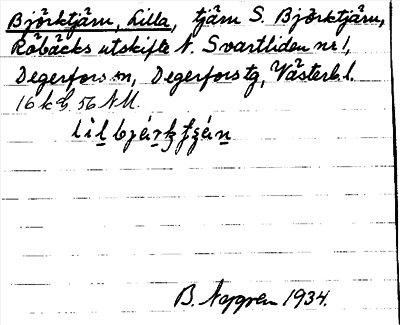 Björktjärn, Lilla, tjärn S. Björktjärn,
Röbäcks utskifte N. Svartliden nr 1,
Degerfors sn, Degerfors tg, Västerb. l.
16 k G. 56 NM.
B. Nygren 1934.